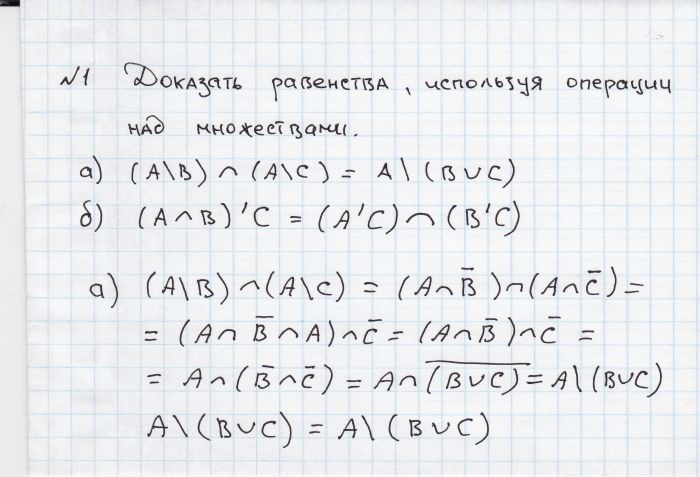 №1 Доказать равенства, используя операции
над множествами.
а) (A\B) ∩ (A\C) = A\(B∪C)
б) (A∩B)'C = (A'C)∩(B'C)
а) (A\B)∩(A\C) = (A∩B̅)∩(A∩C̅) =
= (A∩B̅∩A)∩C̅ = (A∩B̅)∩C̅ =
= A∩(B̅∩C̅) = A∩(B∪C)̅ = A\(B∪C)
A\(B∪C) = A\(B∪C)